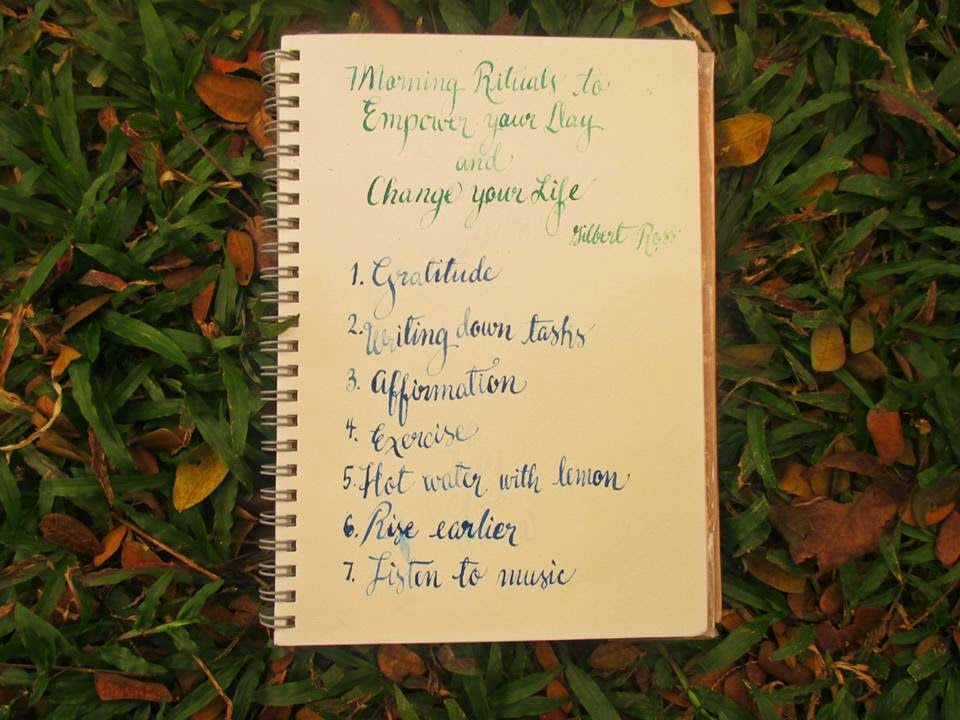 7 Morning Rituals to
Empower your Day
and
Change your Life
Gilbert Ross
1. Gratitude
2. Writing down tasks
3. Affirmation
4. Exercise
5. Hot water with lemon
6. Rise earlier
7. Listen to music